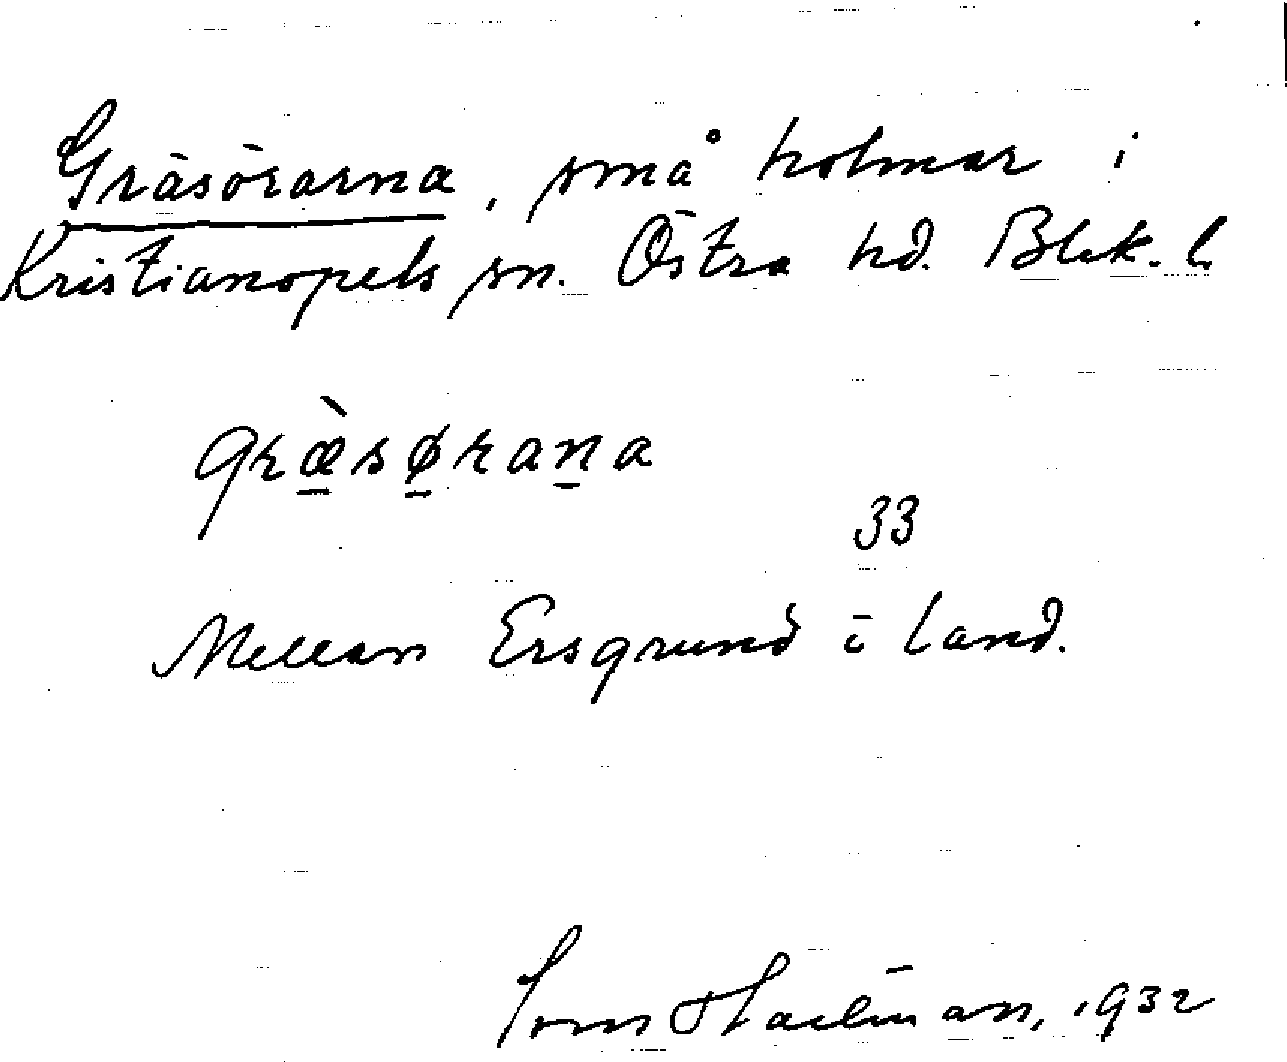 Gräsörarna, små holmar i
Kristianopels sn. Östra hd. Blek. l.
græ̀sørana
33
Mellan Ersgrund o land.
1932